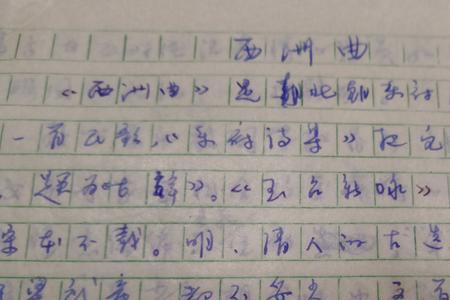 西洲曲
《西洲曲》是南北朝乐府
一首民歌，《乐府诗集》把它
题为"古辞"。《玉台新咏》
宋本不载。明、清人的古选